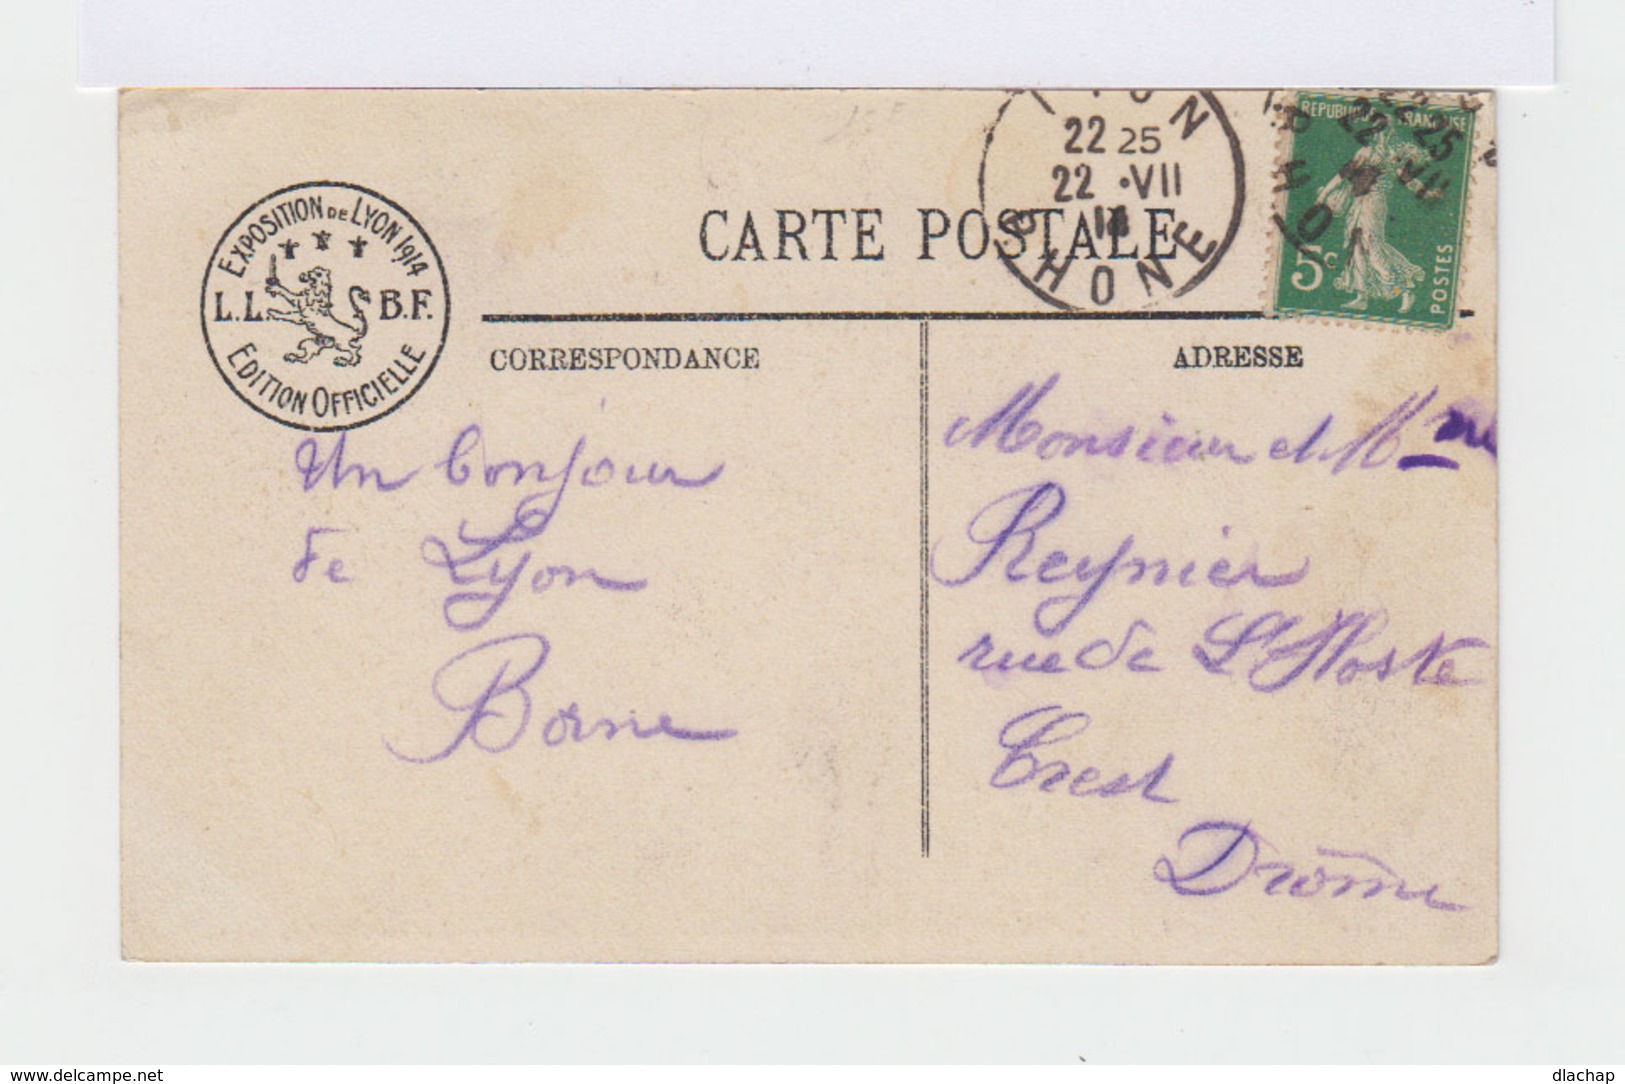 EXPOSITION DE LYON 1914
L.L. B.F.
EDITION OFFICIELLE
CARTE POSTALE
LYON
22 25
22 •VII
14
RHONE
REPUBLIQUE FRANÇAISE
22 25
22 •VII
5c
POSTES
CORRESPONDANCE
ADRESSE
Un bonjour
de Lyon
Borne
Monsieur et Mme
Reynier
rue de L'Hoste
Crest
Drôme
delcampe.net
dlachap